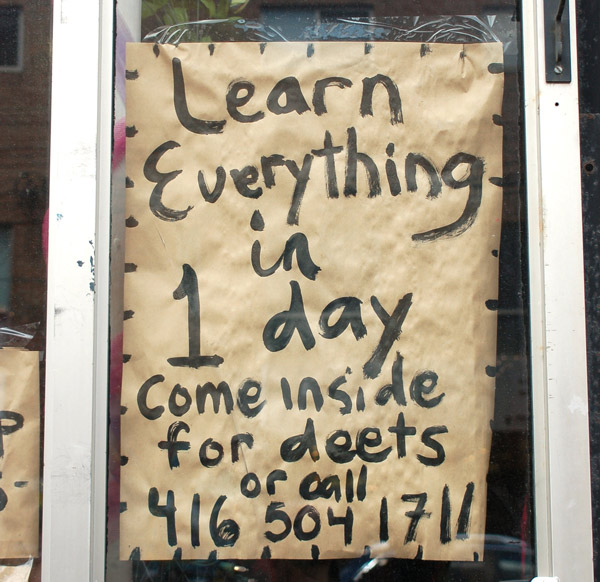 Learn
Everything
in
1 day
come inside
for deets
or call
416 504 1711